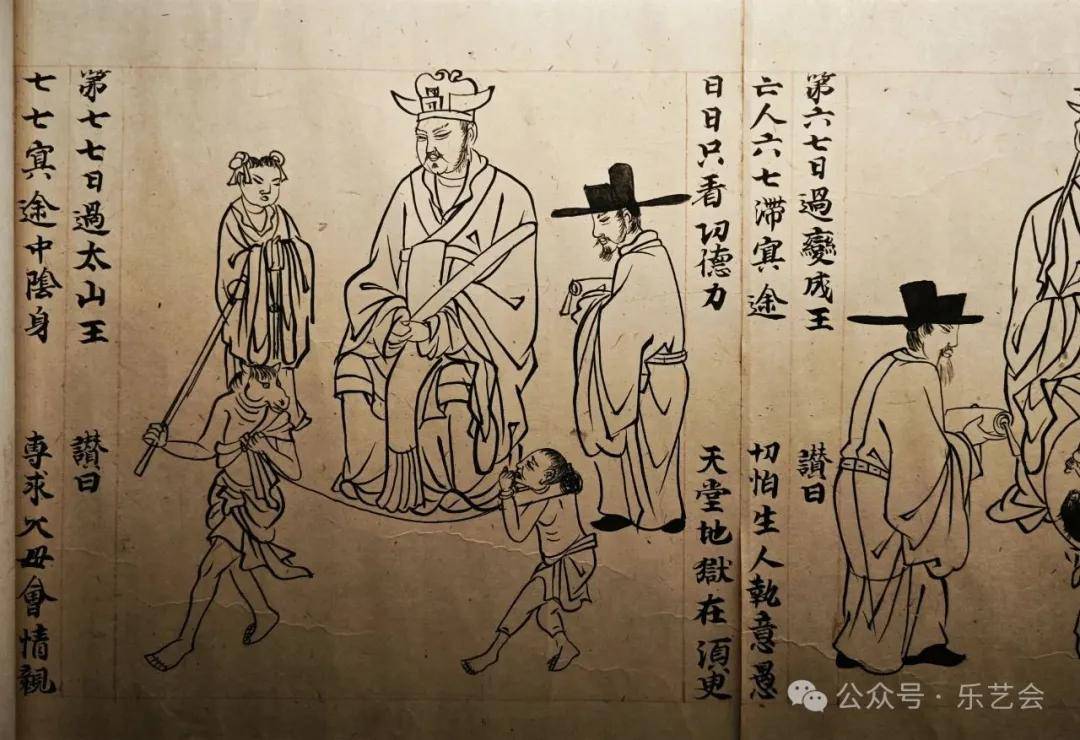 第六七日過變成王 讃曰
亡人六七滯㝠途 切怕生人執意愚
日日只看功德力 天堂地獄在湏臾
第七七日過太山王 讃曰
七七㝠途中陰身 專求父母會情親
公众号·乐艺会